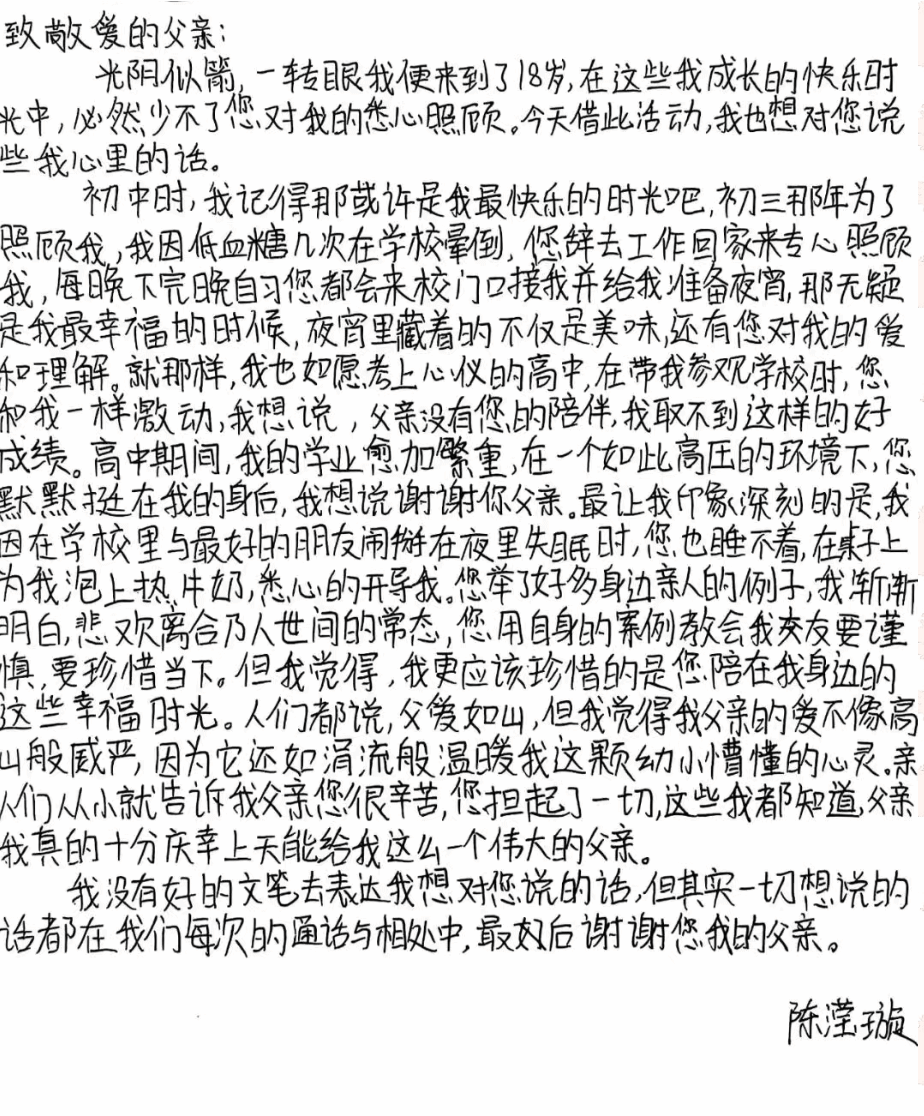 致敬爱的父亲：
光阴似箭，一转眼我便来到了18岁，在这些我成长的快乐时
光中，必然少不了您对我的悉心照顾。今天借此活动，我也想对您说
些我心里的话。
初中时，我记得那或许是我最快乐的时光吧，初三那年为了
照顾我，我因低血糖几次在学校晕倒，您辞去工作回家来专心照顾
我，每晚下完晚自习您都会来校门口接我并给我准备夜宵，那无疑
是我最幸福的时候，夜宵里藏着的不仅是美味，还有您对我的爱
和理解。就那样，我也如愿考上心仪的高中，在带我参观学校时，您
和我一样激动，我想说，父亲没有您的陪伴，我取不到这样的好
成绩。高中期间，我的学业愈加繁重，在一个如此高压的环境下，您
默默挺在我的身后，我想说谢谢你父亲。最让我印象深刻的是，我
因在学校里与最好的朋友闹掰在夜里失眠时，您也睡不着，在桌子上
为我泡上热牛奶，悉心的开导我。您举了好多身边亲人的例子，我渐渐
明白，悲欢离合乃人世间的常态，您用自身的案例教会我交友要谨
慎，要珍惜当下。但我觉得，我更应该珍惜的是您陪在我身边的
这些幸福时光。人们都说，父爱如山，但我觉得我父亲的爱不像高
山般威严，因为它还如涓流般温暖我这颗幼小懵懂的心灵。亲
人们从小就告诉我父亲您很辛苦，您担起了一切，这些我都知道，父亲
我真的十分庆幸上天能给我这么一个伟大的父亲。
我没有好的文笔去表达我想对您说的话，但其实一切想说的
话都在我们每次的通话与相处中，最后谢谢您我的父亲。
陈滢璇